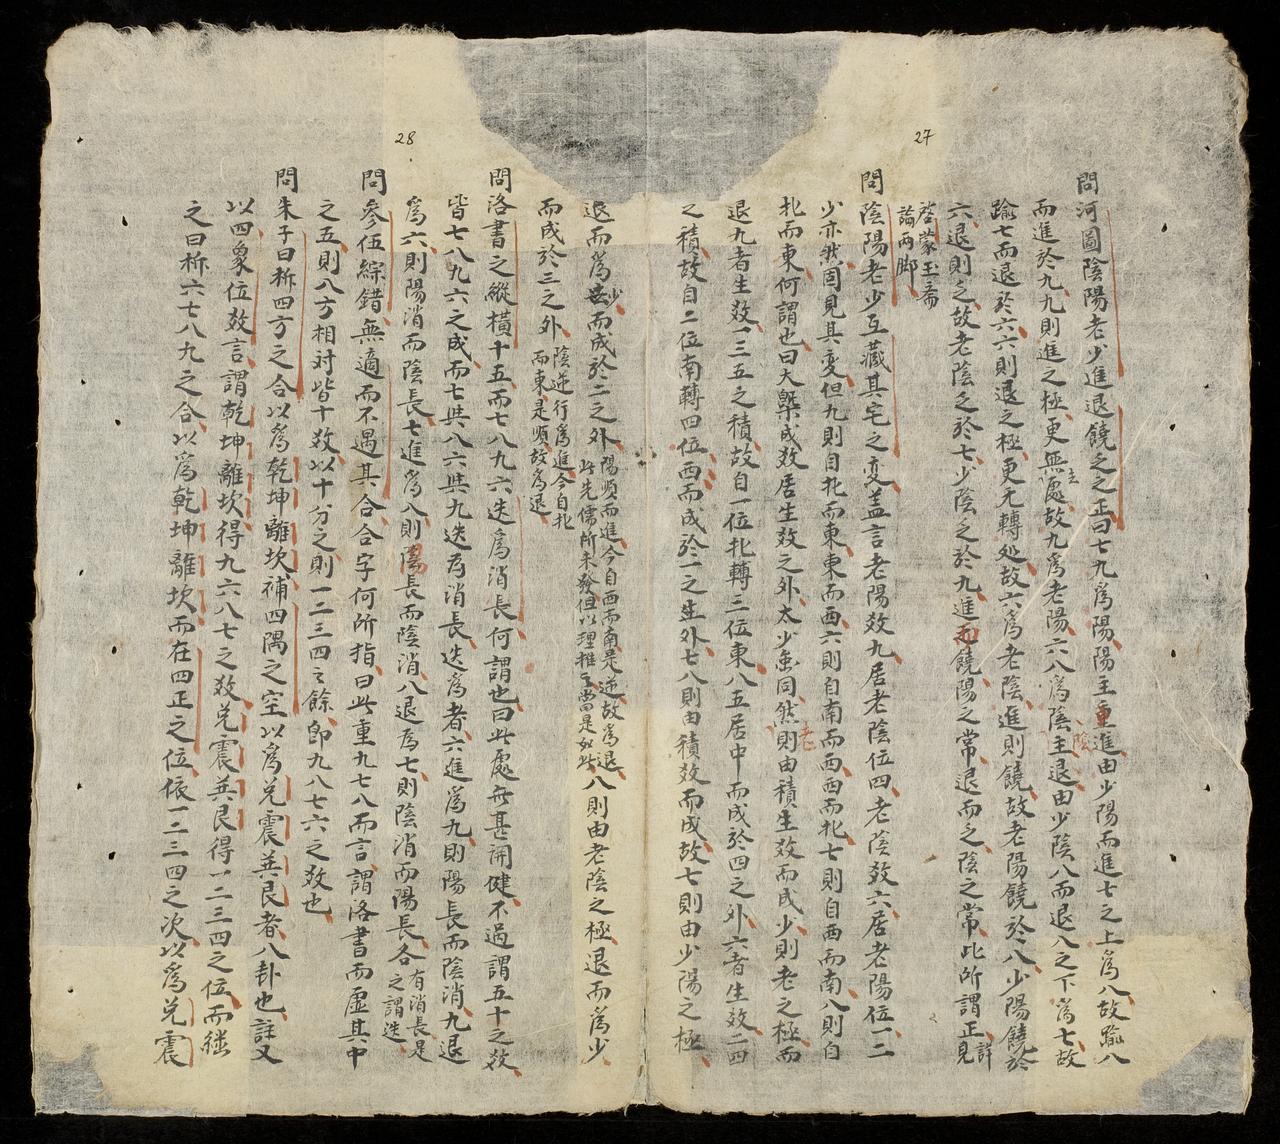 27
問河圖陰陽老少進退饒乏之正曰七九爲陽陽主重進由少陽而進七之上爲八故踰八
而進於九九則進之極更無處故九爲老陽六八爲陰主退由少陰八而退八之下爲七故
踰七而退於六六則退之極更无轉処故六爲老陰進則饒故老陽饒於八少陽饒於
六退則乏故老陰乏於七少陰乏於九進而饒陽之常退而乏陰之常此所謂正見詳
啓蒙玉斋
註両脚
問陰陽老少互藏其宅之変盖言老陽效九居老陰位四老陰效六居老陽位一二
少亦然固見其変但九則自北而東東而西六則自南而西西而北七則自西而南八則自
北而東何謂也曰大槩成效居生效之外太少虽同然則由積生效而成少則老之極而
退九者生效一三五之積故自一位北轉三位東八五居中而成於四之外六者生效二四
之積故自二位南轉四位西而成於一之生外七八則由積效而成故七則由少陽之極
28
退而爲少而成於二之外陽順而進今自西而南是逆故爲退八則由老陰之極退而爲少
此先儒所未發但以理推之當是如此
而成於三之外陰逆行爲進今自北
而東是順故爲退
問洛書之縱横十五而七八九六迭爲消長何謂也曰此處无甚開健不過謂五十之效
皆七八九六之成而七共八六共九迭为消長迭爲者六進爲九則陽長而陰消九退
爲六則陽消而陰長七進爲八則陽長而陰消八退为七則陰消而陽長各有消長是
之謂迭
問參伍綜錯無適而不遇其合合字何所指曰此重九七八而言謂洛書而虛其中
之五則八方相対皆十效以十分之則一二三四之餘卽九八七六之效也
問朱子曰柝四方之合以爲乾坤離坎補四隅之空以爲兌震巽艮者八卦也註又
以四象位效言謂乾坤離坎得九六八七之效兌震巽艮得一二三四之位而継
之曰柝六七八九之合以爲乾坤離坎而在四正之位依一二三四之次以爲兌震